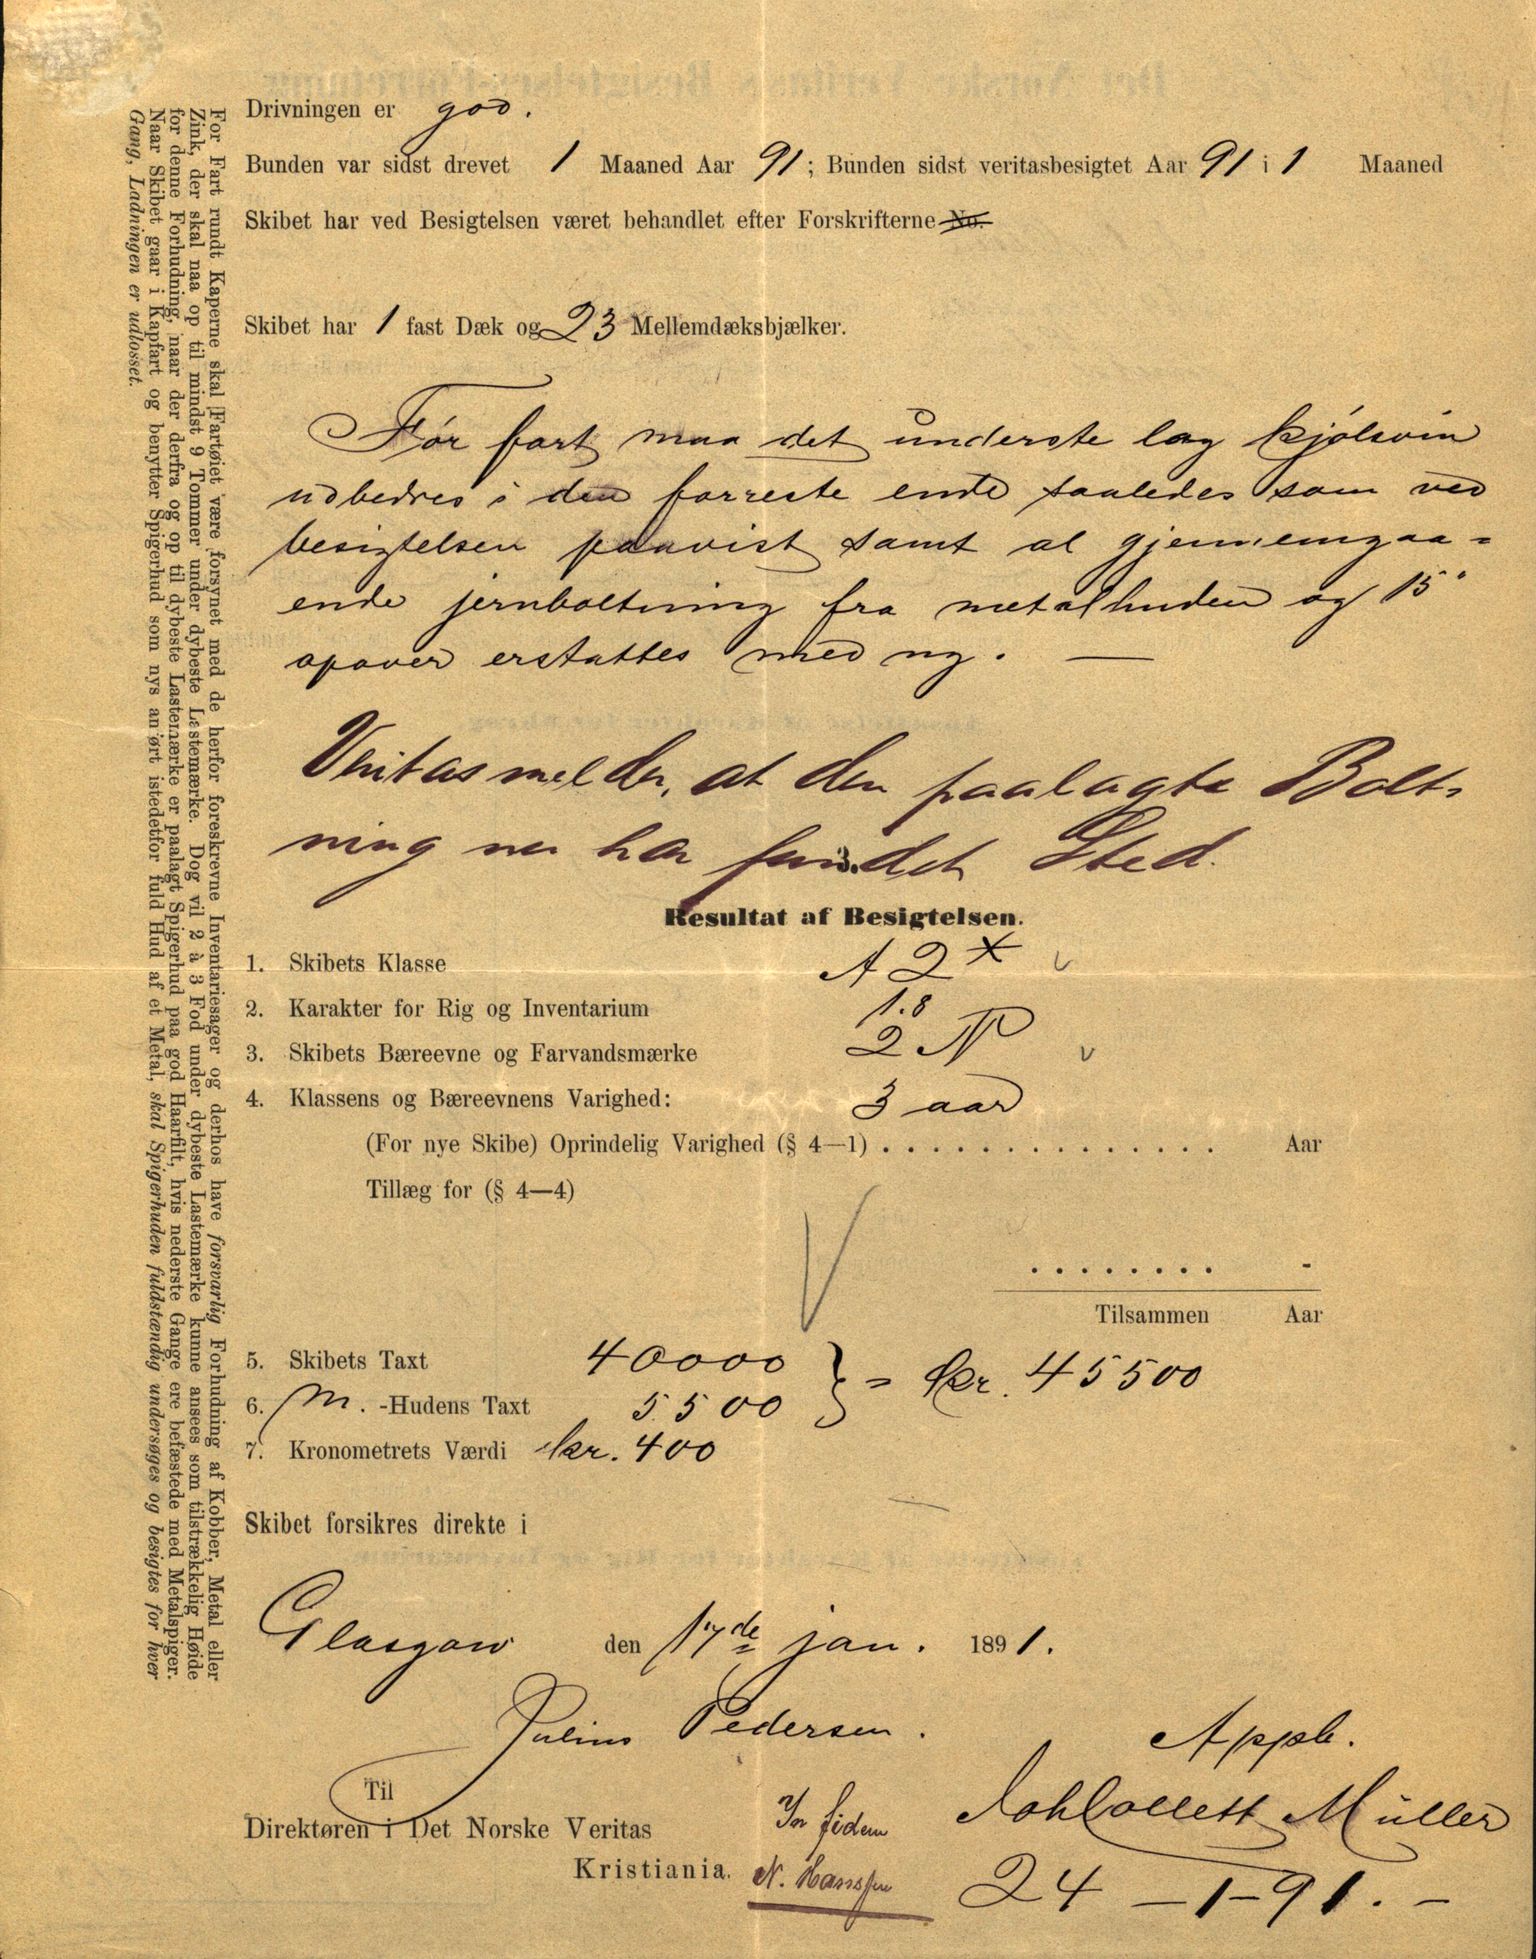 Drivningen er god.
Bunden var sidst drevet 1 Maaned Aar 91; Bunden sidst veritasbesigtet Aar 91 i 1 Maaned
Skibet har ved Besigtelsen været behandlet efter Forskrifterne No.
Skibet har 1 fast Dæk og 23 Mellemdæksbjælker.
Før fart maa det underste lag kjølsvin
udbedres i den forreste ende saaledes som ved
besigtelsen paavist samt al gjennemgaa=
ende jernboltning fra metalhuden og 15"
opover erstattes med ny. —
Veritas melder, at den paalagte Bolt-
ning nu har fundet Sted.
3.
Resultat af Besigtelsen.
1. Skibets Klasse A 2 ×
2. Karakter for Rig og Inventarium 1.8
3. Skibets Bæreevne og Farvandsmærke 2 N
4. Klassens og Bæreevnens Varighed: 3 aar
(For nye Skibe) Oprindelig Varighed (§ 4—1) . . . . . . . . . . . . . . . Aar
Tillæg for (§ 4—4)
. . . . . . . . -
Tilsammen Aar
5. Skibets Taxt 40000 } = kr. 45500
6. M. -Hudens Taxt 5500
7. Kronometrets Værdi kr. 400
Skibet forsikres direkte i
Glasgow den 17de jan. 1891.
Julius Pedersen.
Appb.
Til
Joh Collett Müller
Direktøren i Det Norske Veritas
In fidem
Kristiania.
N. Hanssen
24 – 1 – 91. –
For Fart rundt Kaperne skal Fartøiet være forsynet med de herfor foreskrevne Inventariesager og derhos have forsvarlig Forhudning af Kobber, Metal eller
Zink, der skal naa op til mindst 9 Tommer under dybeste Lastemærke. Dog vil 2 à 3 Fod under dybeste Lastemærke kunne ansees som tilstrækkelig Høide
for denne Forhudning, naar der derfra og op til dybeste Lastemærke er paalagt Spigerhud paa god Haarfilt, hvis nederste Gange ere befæstede med Metalspiger.
Naar Skibet gaar i Kapfart og benytter Spigerhud som nys anført istedetfor fuld Hud af et Metal, skal Spigerhuden fuldstændig undersøges og besigtes for hver
Gang, Ladningen er udlosset.